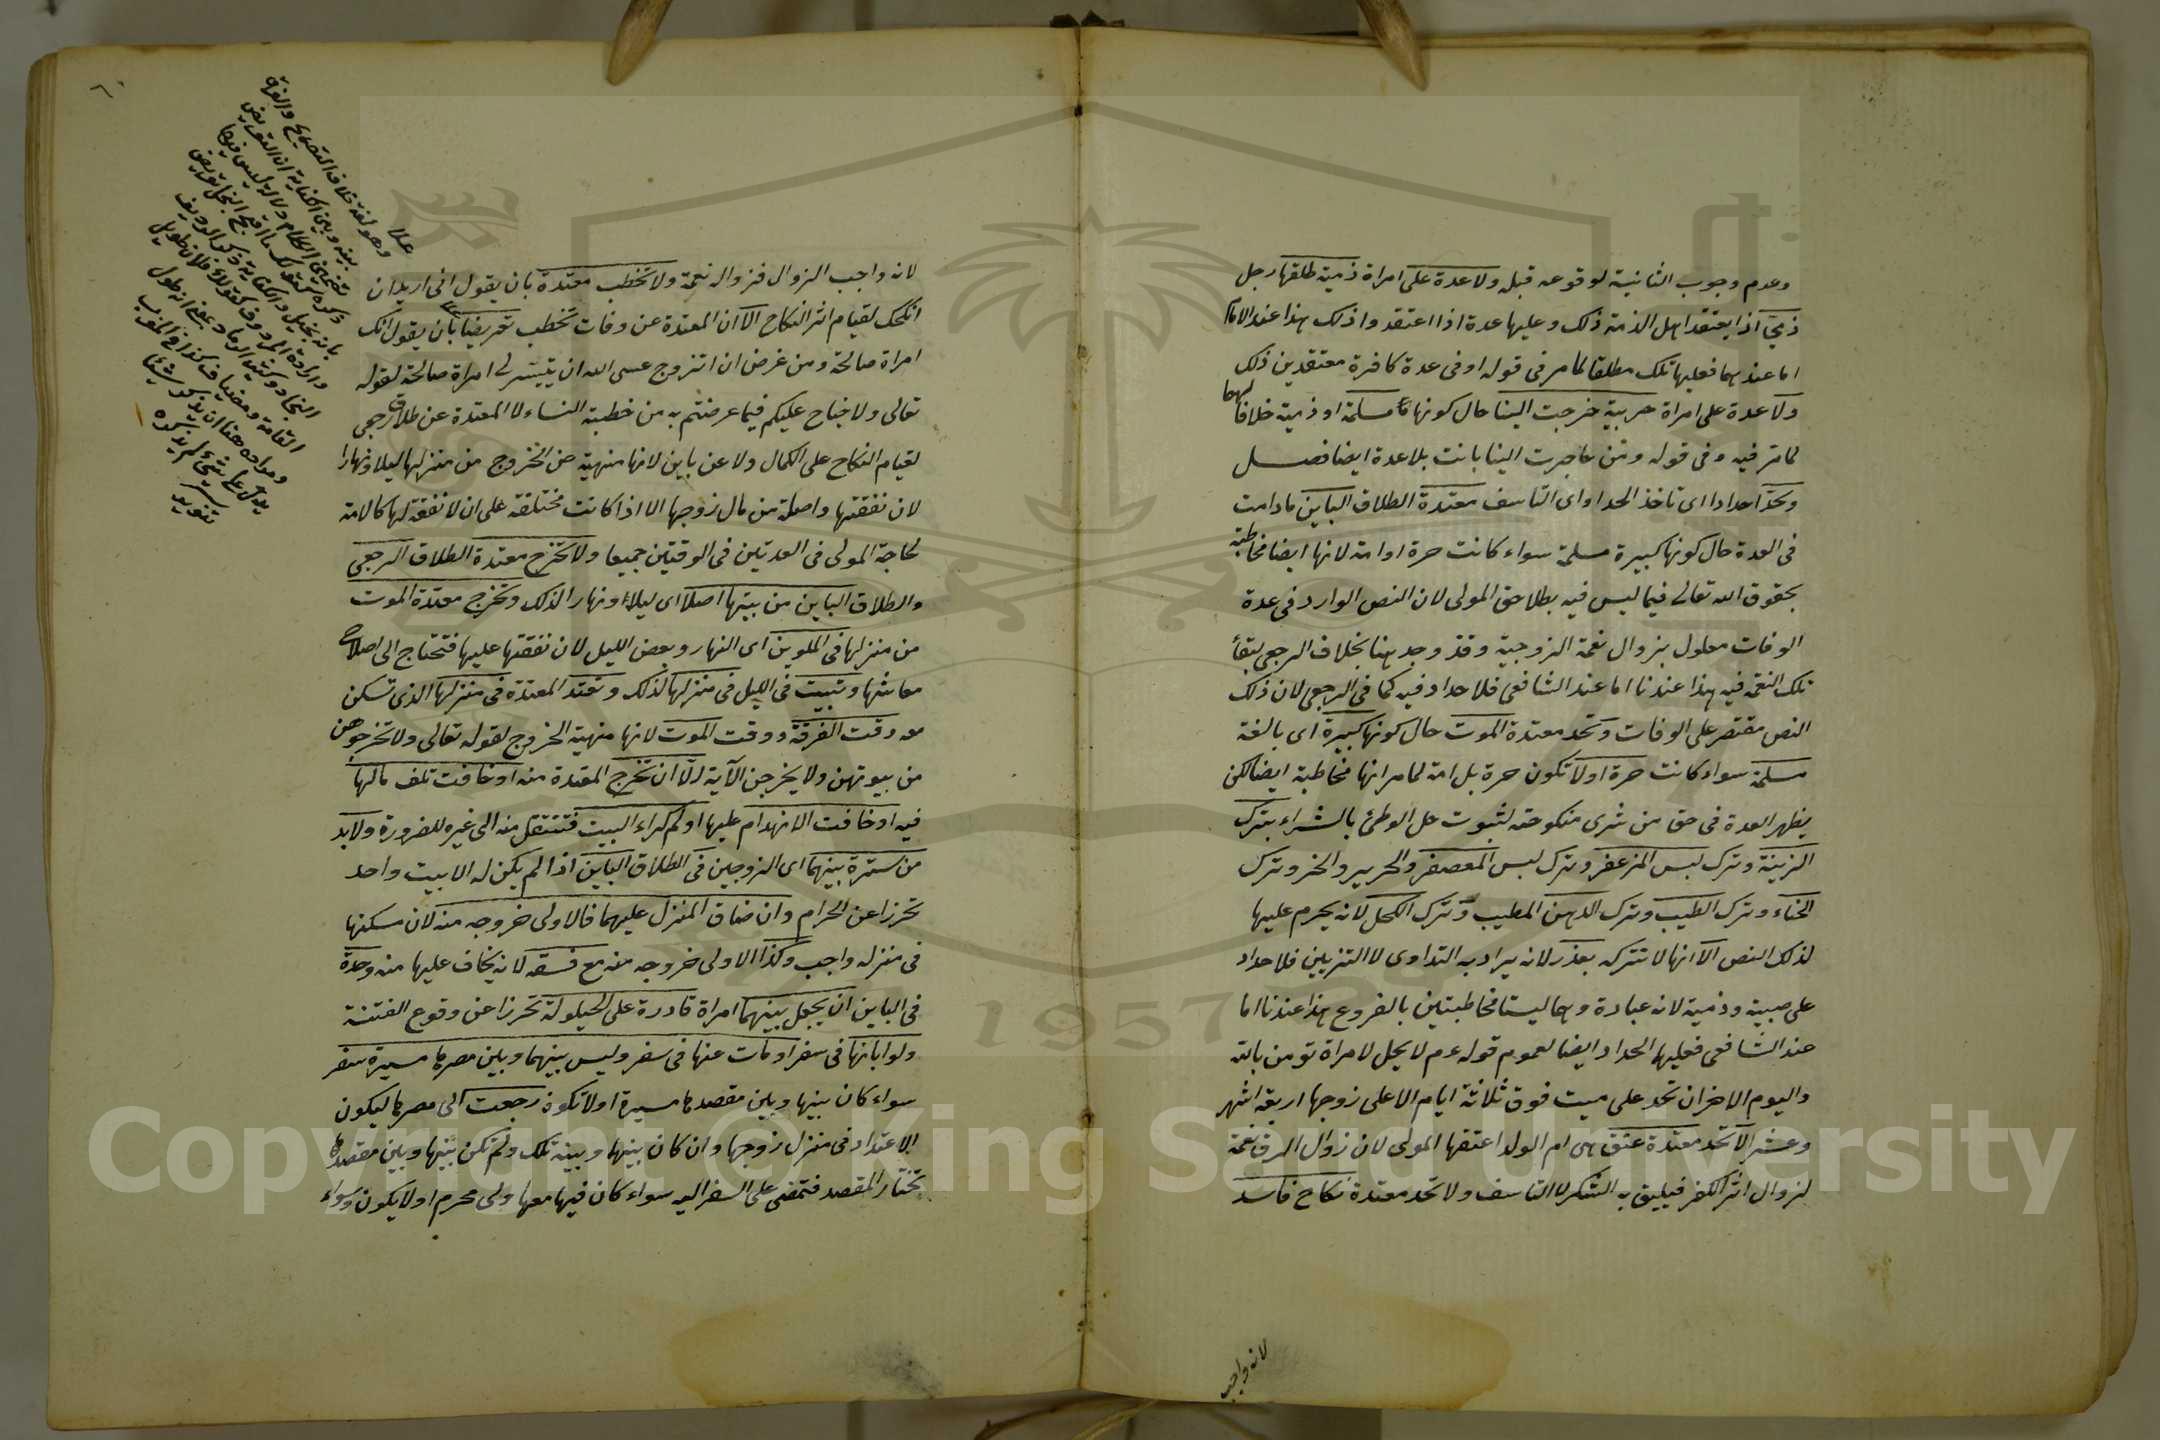 وعدم وجوب الثانية لوقوعه قبله ولا عدة على امراة ذمية طلقها رجل
ذمي اذا يعتقد اهل الذمة ذلك وعليها عدة اذا اعتقدوا ذلك هذا عند الامام
اما عندهما فعليها تلك مطلقا لما مر في قوله او في عدة كافرة معتقدين ذلك
ولا عدة على امراة حربية خرجت الينا حال كونها مسلمة او ذمية خلافا لهما
لما مر فيه وفي قوله ومن هاجرت الينا بانت بلا عدة ايضا فصل
وتحد احدادا اى تاخذ الحداد اى التاسف معتدة الطلاق الباين مادامت
في العدة حال كونها كبيرة مسلمة سواء كانت حرة او امة لانها ايضا مخاطبة
بحقوق الله تعالى فيما ليس فيه بطلا حق المولى لان النص الوارد في عدة
الوفات معلول بزوال نعمة الزوجية وقد وجد هنا بخلاف الرجعي لبقاء
تلك النعمة فيه هذا عندنا اما عند الشافعي فلا حداد فيه كما في الرجعي لان ذلك
النص مقتصر على الوفات وتحد معتدة الموت حال كونها كبيرة اى بالغة
مسلمة سواء كانت حرة اولا تكون حرة بل امة لما مر انها مخاطبة ايضا لكن
يظهر العدة في حق من شرى منكوحته لثبوت حل الوطئ بالشراء بترك
الزينة وترك لبس المزعفر وترك لبس المعصفر والحرير والخز وترك
الحناء وترك الطيب وترك الدهن المطيب وترك الكحل لانه يحرم عليها
لذلك النص الا انها لا تتركه بعذر لانه يراد به التداوى لا التزيين فلا حداد
على صبية وذمية لانه عبادة وهما ليستا مخاطبتين بالفروع هذا عندنا اما
عند الشافعي فعليها الحداد ايضا لعموم قوله عم لا يحل لامراة تومن بالله
واليوم الاخر ان تحد على ميت فوق ثلاثة ايام الا على زوجها اربعة اشهر
وعشرا لا تحد معتدة عتق هى ام الولد اعتقها المولى لان زوال الرق نعمة
لزوال اثر الكفر فيليق به الشكر لا التاسف ولا تحد معتدة نكاح فاسد
لانه واجب
لانه واجب الزوال فزواله نعمة ولا تخطب معتدة بان يقول انى اريد ان
انكحك لقيام اثر النكاح الا ان المعتدة عن وفات تخطب تعريضا بان يقول انك
امراة صالحة ومن غرض ان اتزوج عسى الله ان يتيسر لى امراة صالحة لقوله
تعالى ولا جناح عليكم فيما عرضتم به من خطبة النساء لا المعتدة عن طلاق رجعي
لقيام النكاح على الكمال ولا عن باين لانها منهية عن الخروج من منزلها ليلا ونهارا
لان نفقتها واصلة من مال زوجها الا اذا كانت مختلعة على ان لا نفقة لها كالامة
لحاجة المولى في العدتين في الوقتين جميعا ولا تخرج معتدة الطلاق الرجعي
والطلاق الباين من بيتها اصلا اى ليلا او نهارا لذلك وتخرج معتدة الموت
من منزلها في الملوين اى النهار وبعض الليل لان نفقتها عليها فتحتاج الى اصلاح
معاشها وتبيت في الليل في منزلها لذلك وتعتد المعتدة في منزلها الذى تسكن
معه وقت الفرقة ووقت الموت لانها منهية الخروج لقوله تعالى ولا تخرجوهن
من بيوتهن ولا يخرجن الآية الا ان تخرج المعتدة منه او خافت تلف مالها
فيه او خافت الانهدام عليها او لم كراء البيت فتنتقل منه الى غيره للضرورة ولا بد
من سترة بينهما اى الزوجين في الطلاق الباين اذا لم يكن له الا بيت واحد
تحرزا عن الحرام وان ضاق المنزل عليهما فالاولى خروجه منه لان مسكنها
في منزله واجب وكذا الاولى خروجه منه مع فسقه لانه يخاف عليها منه وحده
في الباين ان يجعل بينهما امراة قادرة على الحيلولة تحرزا عن وقوع الفتنة
ولو ابانها في سفر او مات عنها في سفر وليس بينهما وبين مصرها مسيرة سفر
سواء كان بينها وبين مقصدها مسيرة اولا تكون رجعت الى مصرها ليكون
الاعتداد في منزل زوجها وان كان بينها وبينه تلك ولم تكن بينها وبين مقصدها
تختار المقصد فتمضى على السفر اليه سواء كان فيها معها ولى محرم اولا يكون وسواء
٦٠
وهو لغة خلاف التصريح والفرق
بينه وبين الكناية ان التعريض
تضمين الكلام دلالة ليس فيها
ذكره كقولك ما اقبح البخل تعريض
بانه بخيل والكناية ذكر الرديف
وارادة المردوف كقولك فلان طويل
النجاد وكثير الرماد يعنى انه طويل
القامة ومضياف كذا في المغرب
ومراده هنا ان يذكر شيئا
يدل على شيء لم يذكره
Copyright © King Saud University
1957